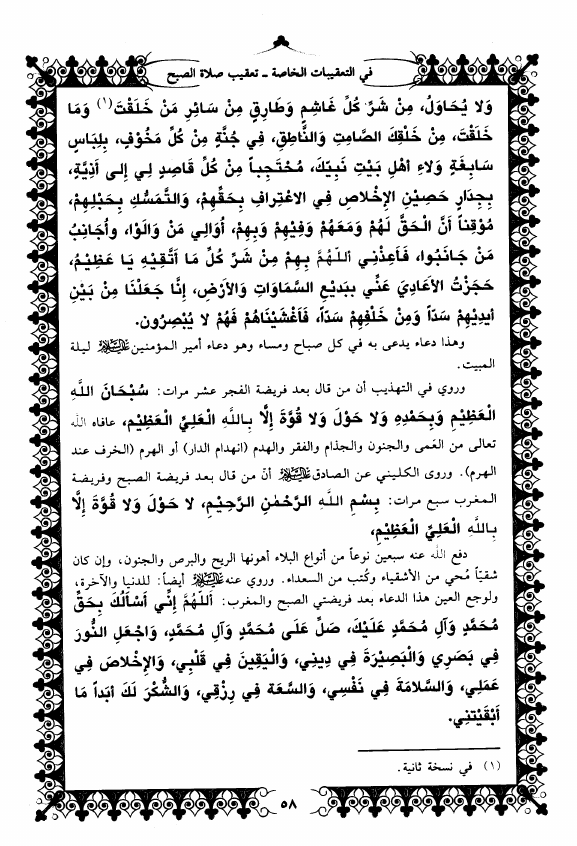 في التعقيبات الخاصة ـ تعقيب صلاة الصبح
وَلا يُحَاوَلُ، مِنْ شَرِّ كُلِّ غَاشِمٍ وَطَارِقٍ مِنْ سَائِرِ مَنْ خَلَقْتَ(١) وَمَا
خَلَقْتَ، مِنْ خَلْقِكَ الصَّامِتِ وَالنَّاطِقِ، فِي جُنَّةٍ مِنْ كُلِّ مَخُوْفٍ، بِلِبَاسٍ
سَابِغَةٍ وَلاءِ أهْلِ بَيْتِ نَبِيِّكَ، مُحْتَجِباً مِنْ كُلِّ قَاصِدٍ لِي إلى أذِيَّةٍ،
بِجِدَارٍ حَصِيْنِ الإخْلاصِ فِي الاعْتِرافِ بِحَقِّهِمْ، وَالتَّمَسُّكِ بِحَبْلِهِمْ،
مُوْقِناً أنَّ الْحَقَّ لَهُمْ وَمَعَهُمْ وَفِيْهِمْ وَبِهِمْ، أُوَالِي مَنْ وَالَوْا، وأُجَانِبُ
مَنْ جَانَبُوا، فَأعِذْنِي اَللّهُمَّ بِهِمْ مِنْ شَرِّ كُلِّ مَا أتَّقِيْهِ يَا عَظِيْمُ،
حَجَزْتُ الأعَادِيَ عَنِّي بِبَدِيْعِ السَّمَاوَاتِ وَالأرْضِ، إنَّا جَعَلْنَا مِنْ بَيْنِ
أيْدِيْهِمْ سَدّاً وَمِنْ خَلْفِهِمْ سَدّاً، فَأغْشَيْنَاهُمْ فَهُمْ لا يُبْصِرُون.
وهذا دعاء يدعى به في كل صباح ومساء وهو دعاء أمير المؤمنين عليه السلام ليلة
المبيت.
وروي في التهذيب أن من قال بعد فريضة الفجر عشر مرات: سُبْحَانَ اللهِ
الْعَظِيْمِ وَبِحَمْدِهِ وَلا حَوْلَ وَلا قُوَّةَ إلَّا بِاللهِ الْعَلِيِّ الْعَظِيْمِ، عافاه الله
تعالى من العَمى والجنون والجذام والفقر والهدم (انهدام الدار) أو الهرم (الخرف عند
الهرم). وروى الكليني عن الصادق عليه السلام أنّ من قال بعد فريضة الصبح وفريضة
المغرب سبع مرات: بِسْمِ اللهِ الرَّحْمٰنِ الرَّحِيْمِ، لا حَوْلَ وَلا قُوَّةَ إلَّا
بِاللهِ الْعَلِيِّ الْعَظِيْمِ،
دفع الله عنه سبعين نوعاً من أنواع البلاء أهونها الريح والبرص والجنون، وإن كان
شقيّاً مُحي من الأشقياء وكُتب من السعداء. وروي عنه عليه السلام أيضاً: للدنيا والآخرة،
ولوجع العين هذا الدعاء بعد فريضتي الصبح والمغرب: اَللّهُمَّ إنِّي أسْألُكَ بِحَقِّ
مُحَمَّدٍ وَآلِ مُحَمَّدٍ عَلَيْكَ، صَلِّ عَلَى مُحَمَّدٍ وَآلِ مُحَمَّدٍ، وَاجْعَلِ النُّورَ
فِي بَصَرِي وَالْبَصِيْرَةَ فِي دِيْنِي، وَالْيَقِيْنَ فِي قَلْبِي، وَالإخْلاصَ فِي
عَمَلِي، وَالسَّلامَةَ فِي نَفْسِي، وَالسَّعَةَ فِي رِزْقِي، وَالشُّكْرَ لَكَ أبَداً مَا
أبْقَيْتَنِي.
(١) في نسخة ثانية.
٥٨